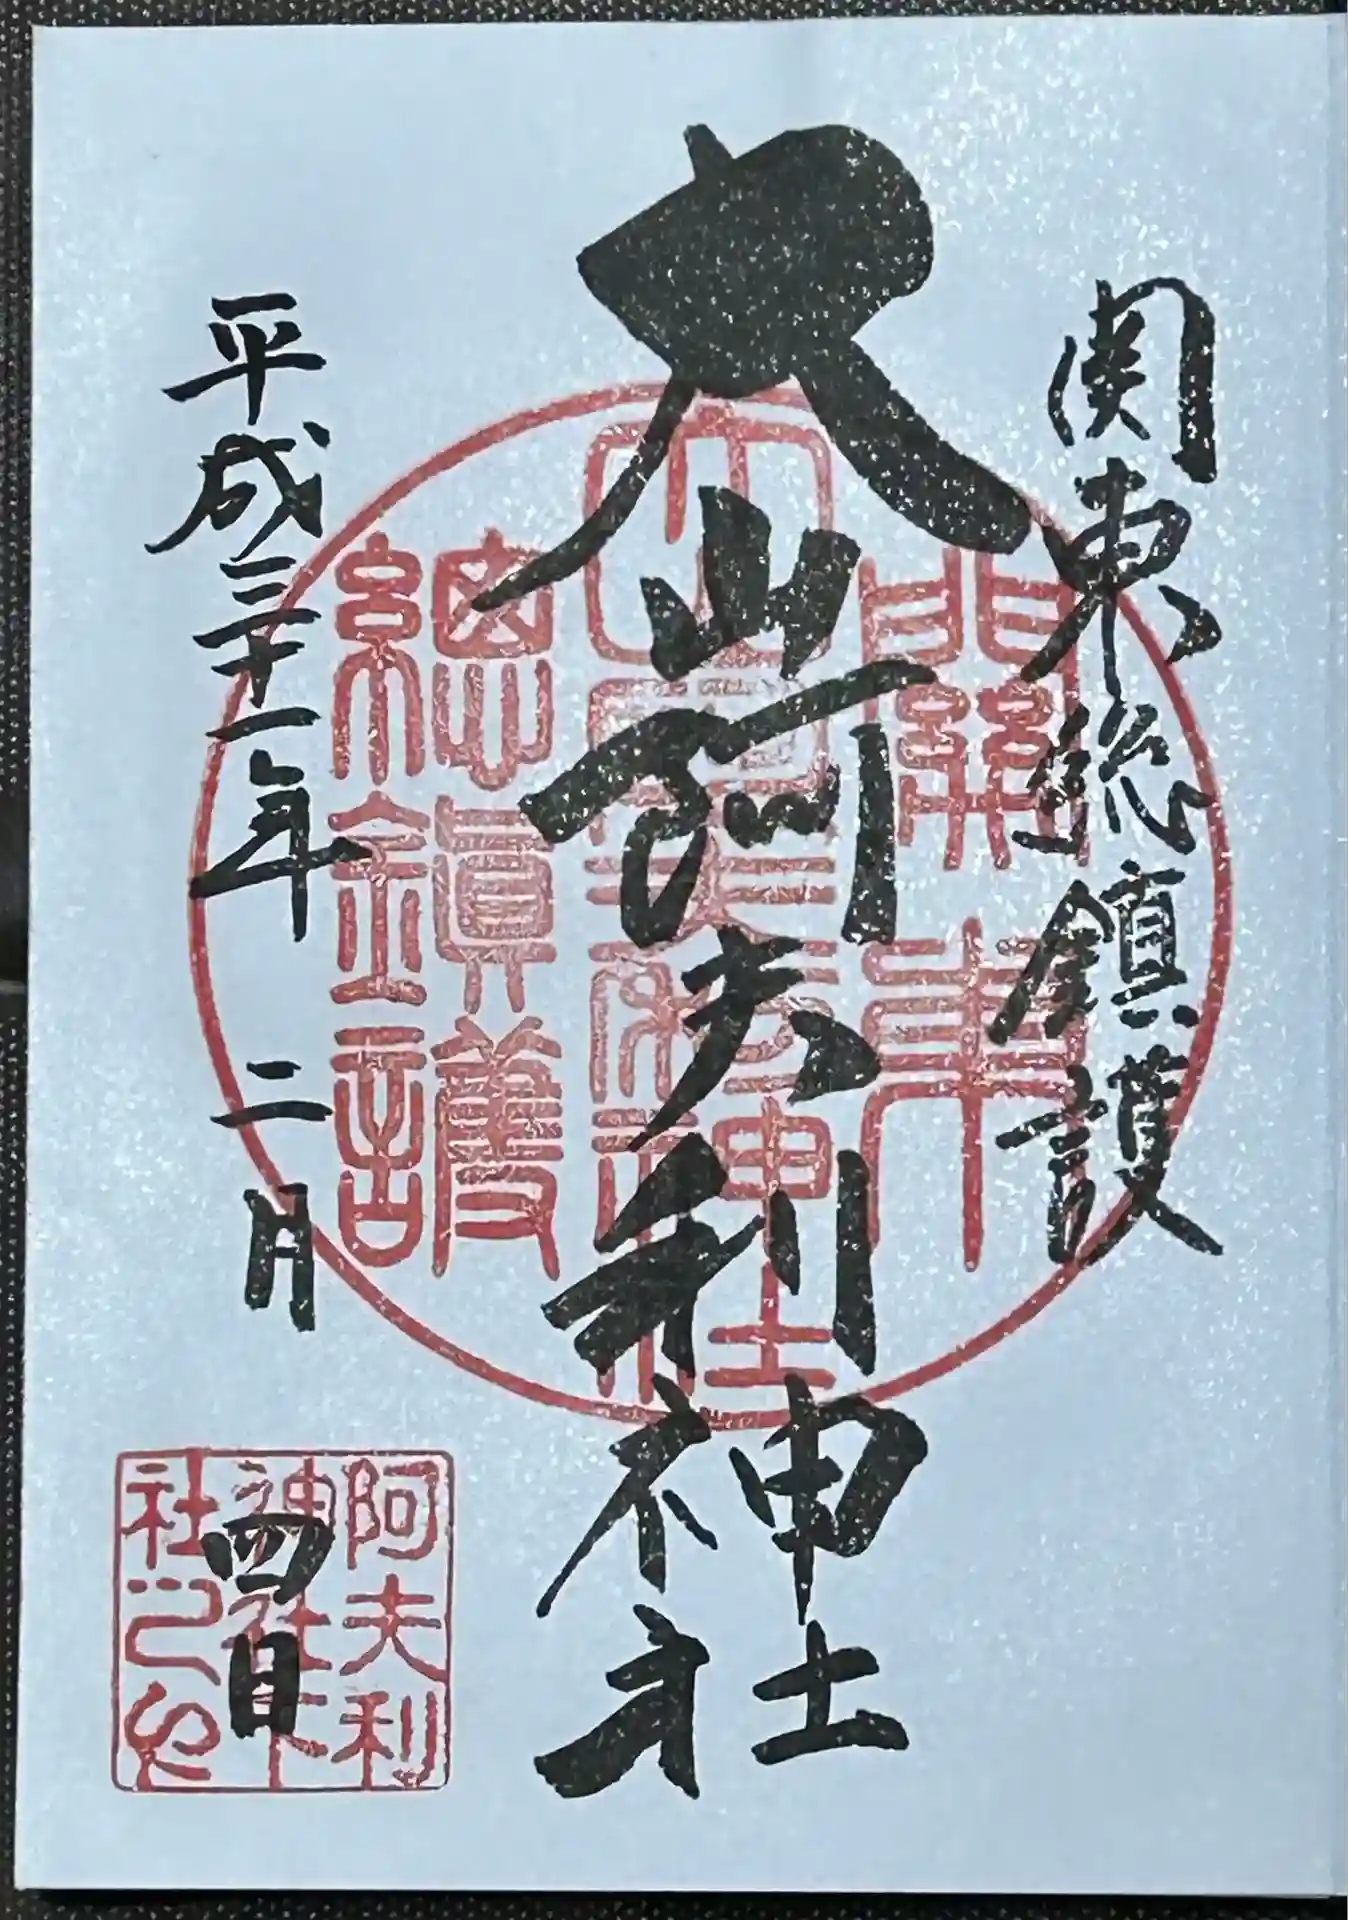 関東総鎮護
大山阿夫利神社
平成三十一年二月四日
關東
大山阿夫利神社
總鎮護
阿夫利
神社本
社之印